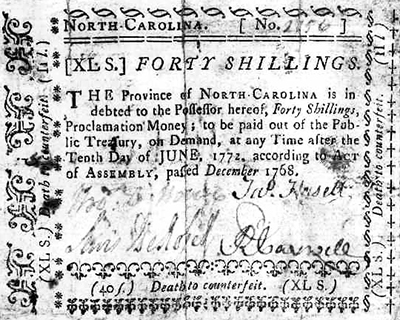 NORTH-CAROLINA. [ No.
[XL S.] FORTY SHILLINGS.
THE Province of NORTH-CAROLINA is in-
debted to the Possessor hereof, Forty Shillings,
Proclamation Money; to be paid out of the Pub-
lic Treasury, on Demand, at any Time after the
Tenth Day of JUNE, 1772. according to ACT
of ASSEMBLY, passed December 1768.
(40 s.) Death to counterfeit. (XL S.)
(XL S.) Death to counterfeit. (III.)
(XL S.) Death to counterfeit. (III.)